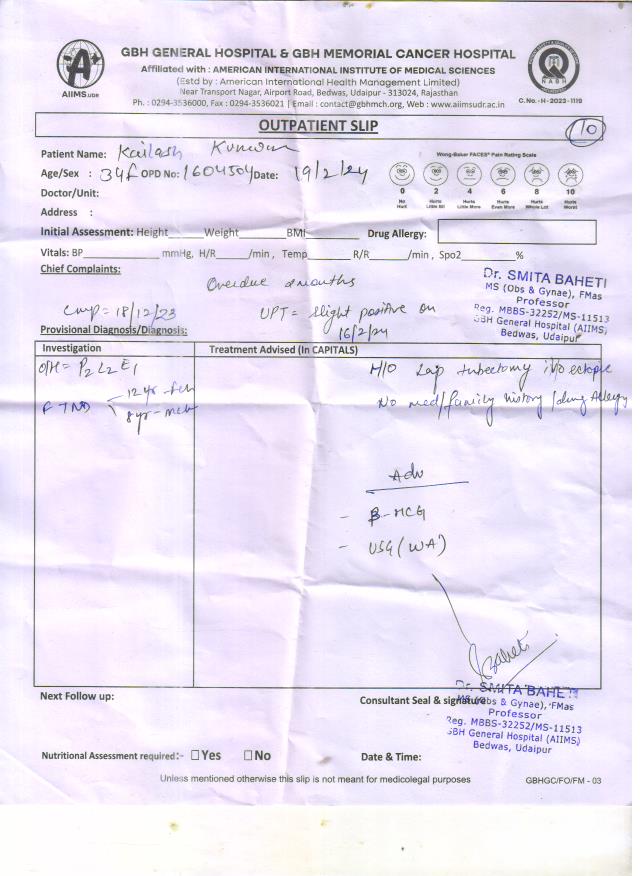 GBH GENERAL HOSPITAL & GBH MEMORIAL CANCER HOSPITAL
Affiliated with : AMERICAN INTERNATIONAL INSTITUTE OF MEDICAL SCIENCES
(Estd by : American International Health Management Limited)
Near Transport Nagar, Airport Road, Bedwas, Udaipur - 313024, Rajasthan
Ph. : 0294-3536000, Fax : 0294-3536021 | Email : contact@gbhmch.org, Web : www.aiimsudr.ac.in
AIIMS.UDR
NABH
C. No. - H - 2023 - 1119
OUTPATIENT SLIP
10
Patient Name: Kailash Kunwar
Age/Sex : 34f OPD No: 1604504 Date: 19/2/24
Wong-Baker FACES® Pain Rating Scale
0 2 4 6 8 10
No Hurt Hurts Little Bit Hurts Little More Hurts Even More Hurts Whole Lot Hurts Worst
Doctor/Unit:
Address :
Initial Assessment: Height Weight BMI Drug Allergy:
Vitals: BP mmHg, H/R /min , Temp R/R /min , Spo2 %
Chief Complaints:
Overdue 2 months
Dr. SMITA BAHETI
MS (Obs & Gynae), FMas
Professor
Reg. MBBS-32252/MS-11513
GBH General Hospital (AIIMS)
Bedwas, Udaipur
LMP = 18/12/23 UPT = slight positive on
16/2/24
Provisional Diagnosis/Diagnosis:
Investigation Treatment Advised (In CAPITALS)
O/H = P2L2E1
FTND
12 yr - fch
8 yr - mch
H/O Lap tubectomy i/v/o ectopic
No med/family history / drug Allergy
Adv
- β-HCG
- USG (WA)
Baheti
Next Follow up:
Consultant Seal & signature
Dr. SMITA BAHETI
MS (Obs & Gynae), FMas
Professor
Reg. MBBS-32252/MS-11513
GBH General Hospital (AIIMS)
Bedwas, Udaipur
Nutritional Assessment required:- Yes No Date & Time:
Unless mentioned otherwise this slip is not meant for medicolegal purposes GBHGC/FO/FM - 03